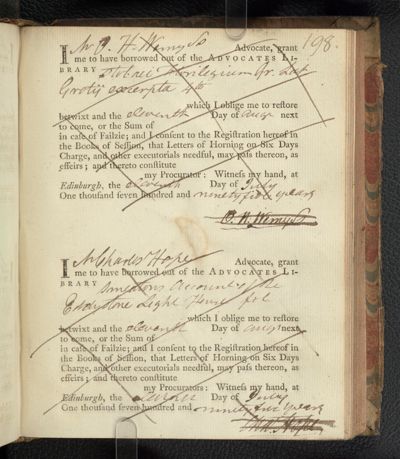 198.
I Mr D. H. Wemyss Advocate, grant
me to have borrowed out of the ADVOCATES LI-
BRARY Stobaei Florilegium Gr. Lat
Grotij excerpta 4to
which I oblige me to restore
betwixt and the eleventh Day of Augt next
to come, or the Sum of
in case of Failzie; and I consent to the Registration hereof in
the Books of Session, that Letters of Horning on Six Days
Charge, and other executorials needful, may pass thereon, as
effeirs; and thereto constitute
my Procurator: Witness my hand, at
Edinburgh, the eleventh Day of July
One thousand seven hundred and ninety five years
D. H. Wemyss
I Mr Charles Hope Advocate, grant
me to have borrowed out of the ADVOCATES LI-
BRARY Smeatons Account of the
Eddystone Light House fol.
which I oblige me to restore
betwixt and the eleventh Day of Augt next
to come, or the Sum of
in case of Failzie; and I consent to the Registration hereof in
the Books of Session, that Letters of Horning on Six Days
Charge, and other executorials needful, may pass thereon, as
effeirs; and thereto constitute
my Procurators: Witness my hand, at
Edinburgh, the eleventh Day of July
One thousand seven hundred and ninety five years
Chas. Hope